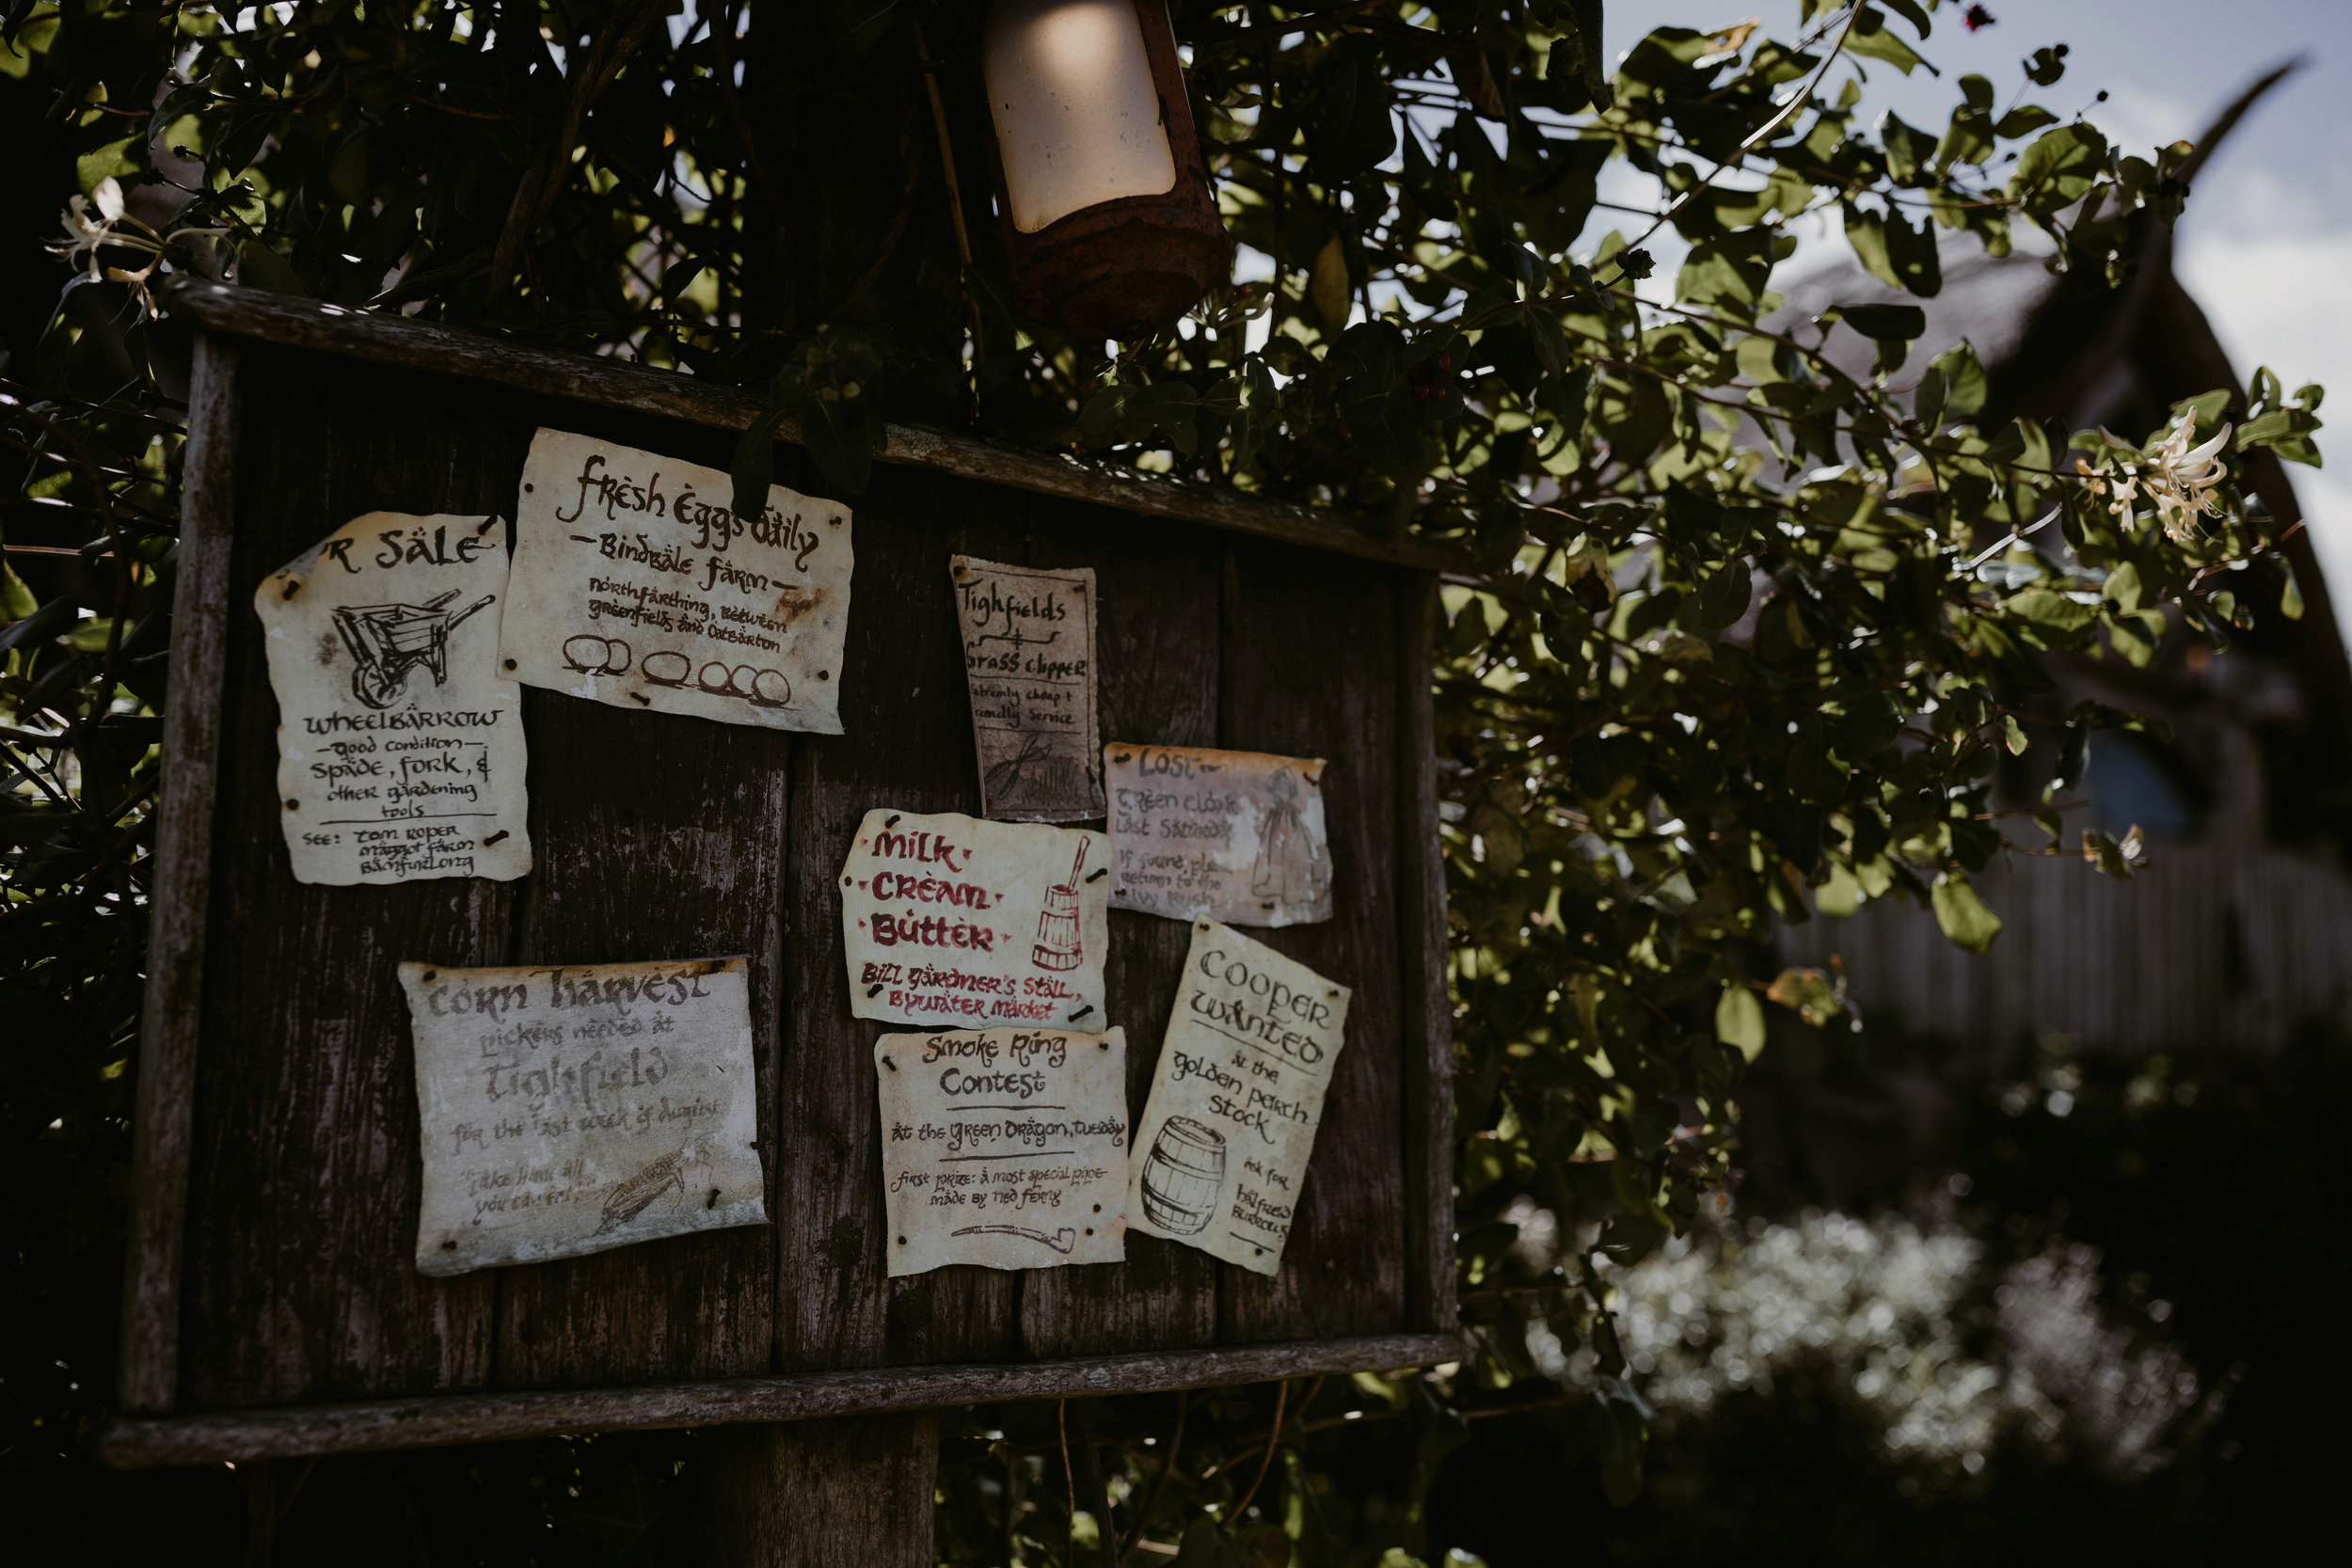 R SALE
WHEELBARROW
-good condition-
spade, fork, &
other gardening
tools
see: tom roper
maggot farm
Bamfurlong
fresh eggs daily
-Bindbale farm-
northfarthing, between
greenfields and Oatbarton
Tighfields
Grass clipper
xtremly cheap +
endly Service
LOST
Green cloak
last Saturday
if found, plea
return to the
Ivy Bush
·MILK·
·CREAM·
·BUTTER·
Bill gardner's stall,
Bywater market
corn harvest
pickers needed at
Tighfield
for the last week of August
"Take home all
you can eat"
Smoke Ring
Contest
at the Green Dragon, tuesday
first prize: a most special pipe
made by ted ferny
COOPER
WANTED
at the
golden perch
stock
ask for
halfred
Burrows